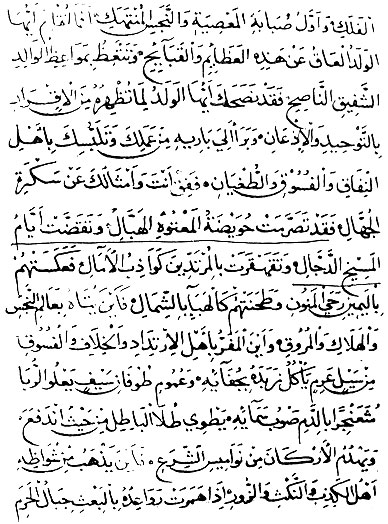 الفلك واول ضبابة المعصية والنجس المنهمك انما لقام ايها
الولد العاق عن هذه العظايم والقبايح وتتعظ بمواعظ الوالد
الشفيق الناصح فقد نصحك ايها الولد لما تظهره من الاقرار
بالتوحيد والاذعان وبرا الى باريه من عملك وتلبسك باهل
النفاق والفسوق والطغيان فعن انت وامثالك عن سكرة
الجهال فقد تصرمت حويضنة المعتوه الهبال وتقضت ايام
المسيح الدجال وتقهقرت بالمرتدين كواذب الامال فعكستهم
باليمين رحى المنون وطحنتهم كالهبا بالشمال فاين بناه بعالم النجس
والهلاك والمروق واين المفر باهل الارتداد والخلاف والفسوق
من سيل عرم ياكل زبده بجفايه وعموم طوفان سيف يعلو الربا
مثعنجرا بالدم صوب سمايه ويطوي ظلال الباطل من حيث اندفع
ويهدم الاركان من نواميس الشرع فاين يذهب من شواظه
اهل الكذب والنكث والزور اذا همرت رواعده بالبعث جبال الحرم